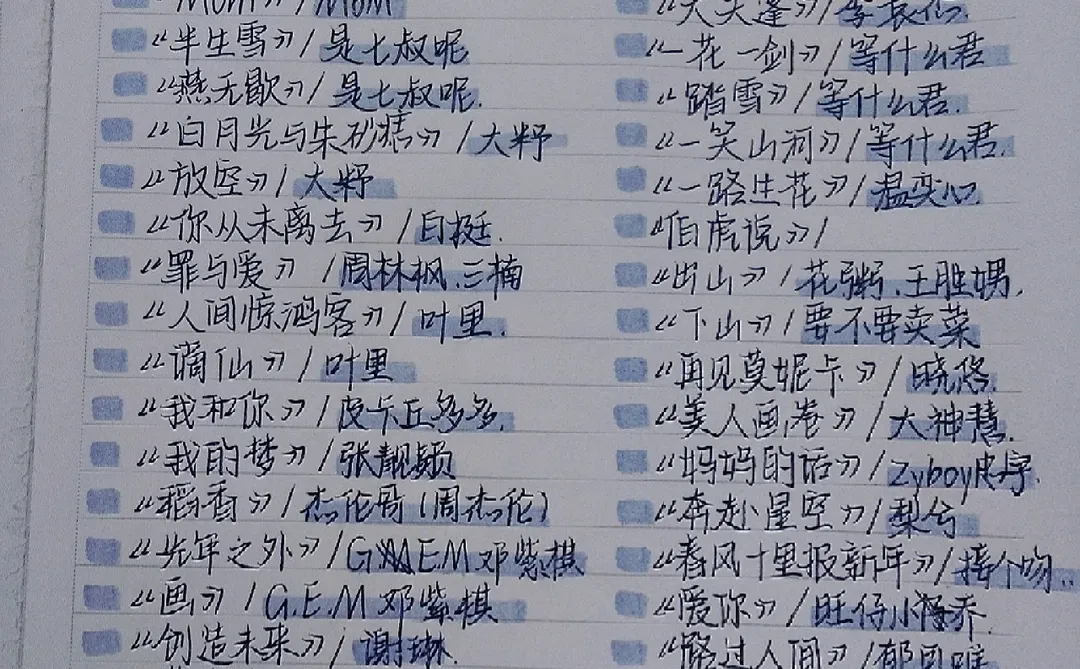 《半生雪》/是七叔呢
《燕无歇》/是七叔呢.
《白月光与朱砂痣》/大籽
《放空》/大籽
《你从未离去》/白挺.
《罪与爱》/周林枫.三楠
《人间惊鸿客》/叶里.
《谪仙》/叶里
《我和你》/皮卡丘多多.
《我的梦》/张靓颖
《稻香》/杰伦哥(周杰伦)
《光年之外》/G.E.M邓紫棋
《画》/G.E.M邓紫棋
《创造未来》/谢琳.
《一花一剑》/等什么君
《踏雪》/等什么君.
《一笑山河》/等什么君.
《一路生花》/温奕心.
《伯虎说》/
《出山》/花粥.王胜男.
《下山》/要不要卖菜
《再见莫妮卡》/晓悠.
《美人画卷》/大神慧.
《妈妈的话》/Zyboy忠宇.
《奔赴星空》/梨兮
《春风十里报新年》/接个吻..
《爱你》/旺仔小乔.
《路过人间》/郁可唯